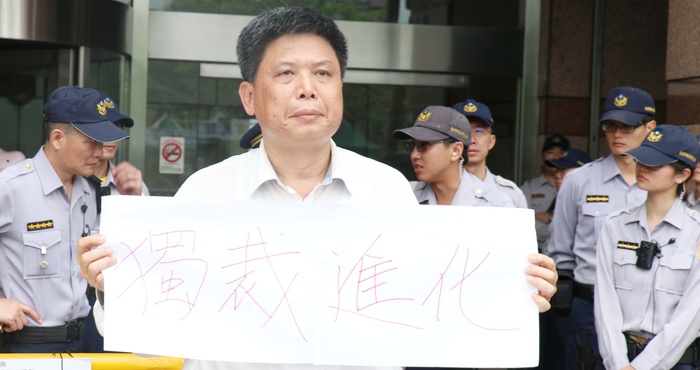 獨裁進化